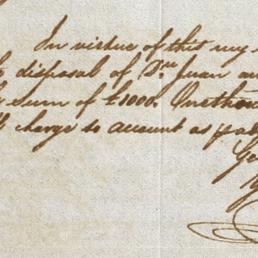 In virtue of this my
disposal of Dn Juan
sum of £1000. One thou
charge to account as p
Ge